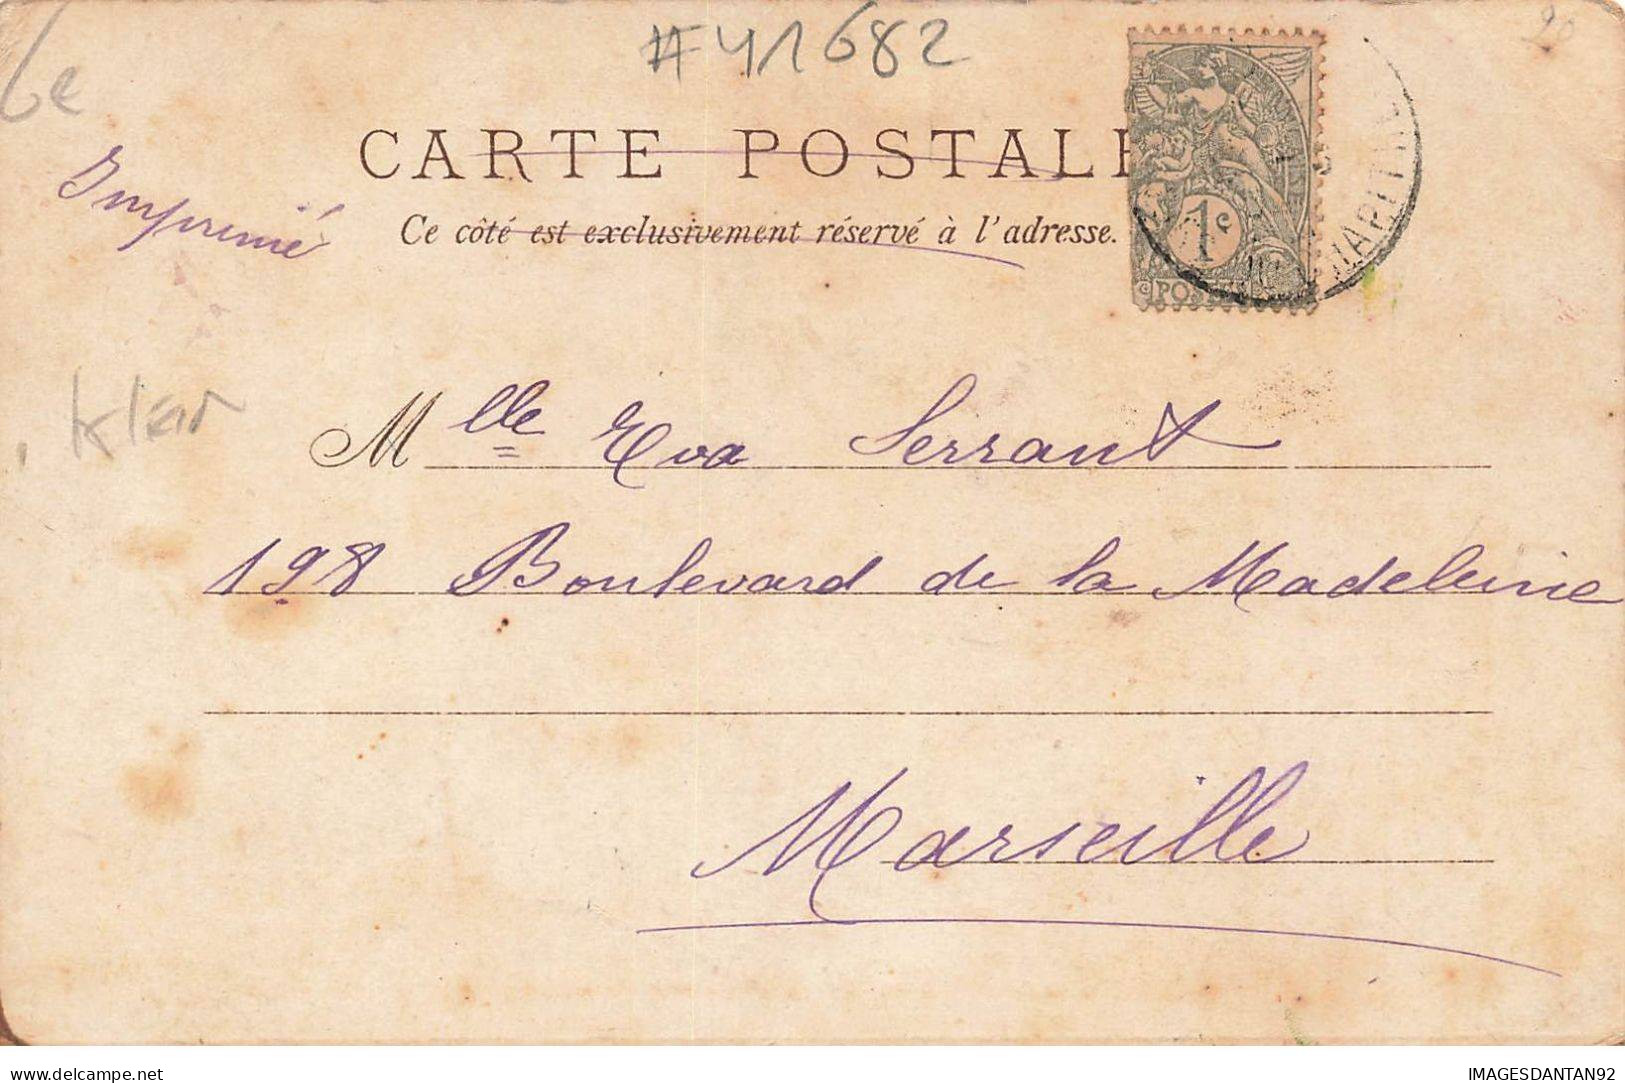 #41682
20
6e
CARTE POSTALE
Imprimé
Ce côté est exclusivement réservé à l'adresse.
1c
POSTES
Klein
Mlle Eva Serrant
198 Boulevard de la Madeleine
Marseille
delcampe.net
IMAGESDANTAN92